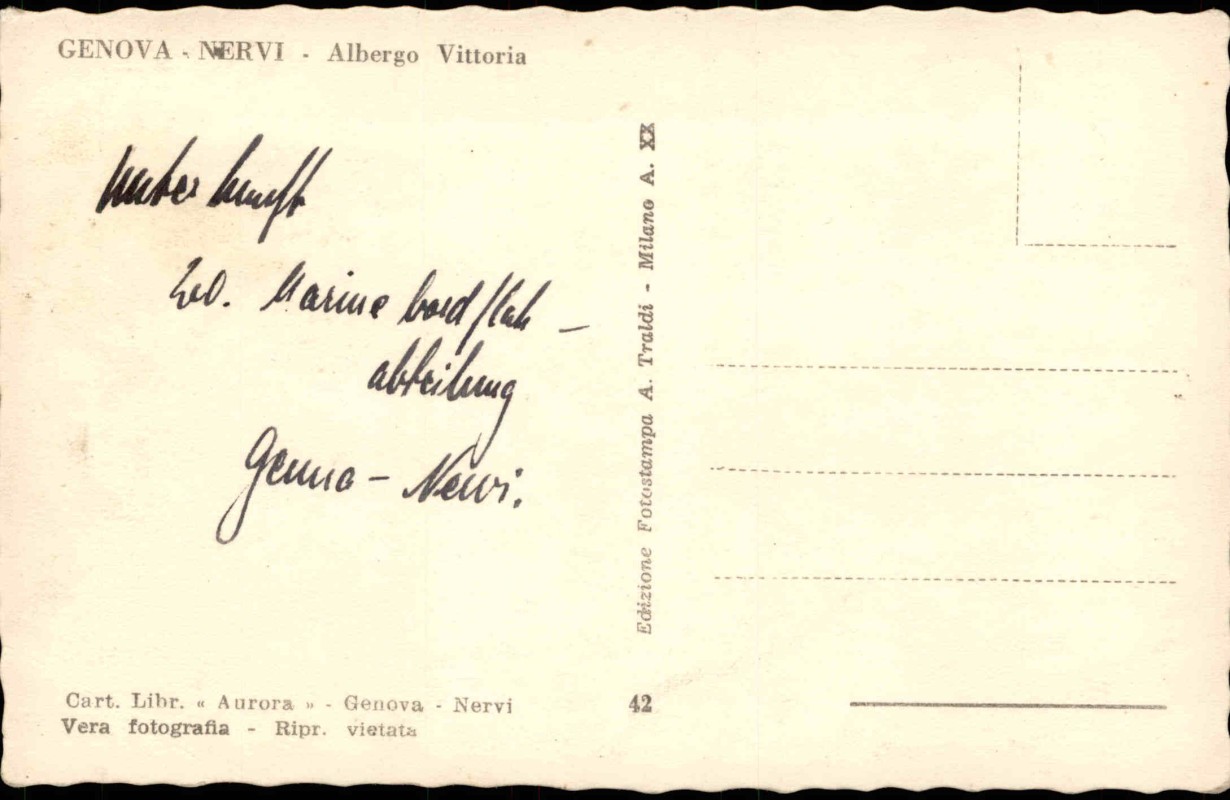 GENOVA - NERVI - Albergo Vittoria
Unterkunft
Marinebordflak-
abteilung
Genua - Nervi.
Edizione Fotostampa A. Traldi - Milano A. XX
Cart. Libr. « Aurora » - Genova - Nervi
Vera fotografia - Ripr. vietata
42